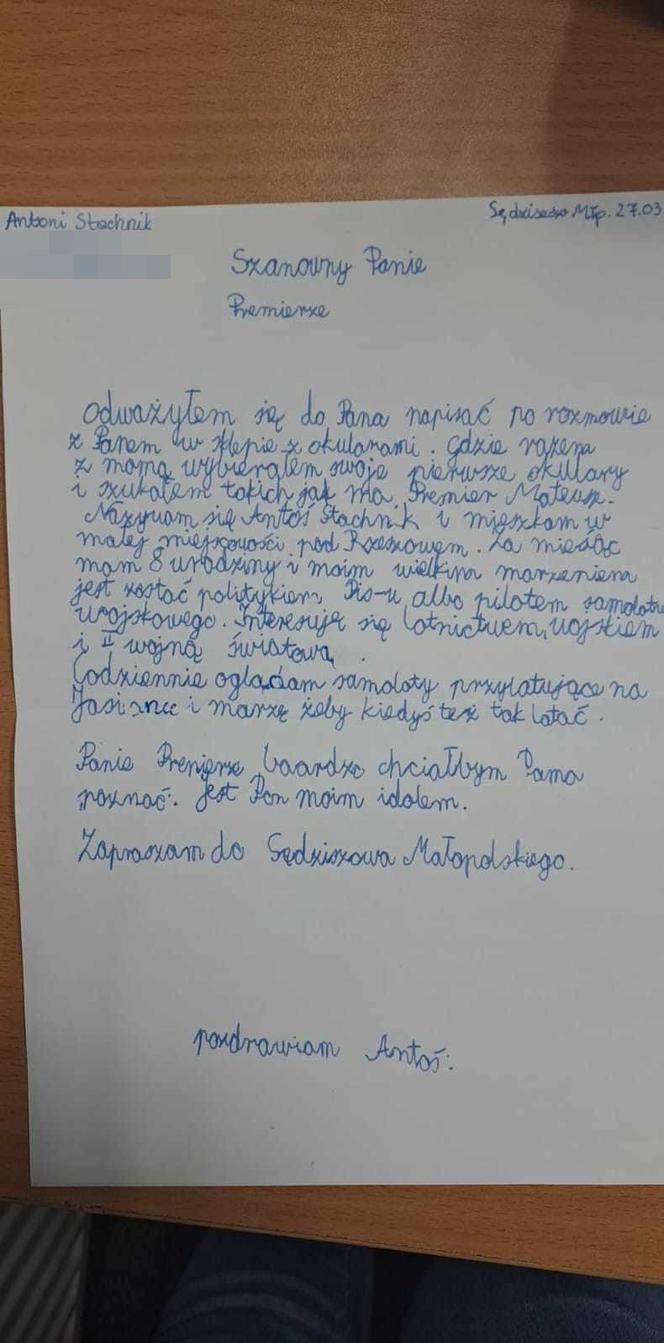 Antoni Stachnik
Sędziszów Młp. 27.03
Szanowny Panie
Premierze
Odważyłem się do Pana napisać po rozmowie
z Panem w sklepie z okularami. Gdzie razem
z mamą wybierałem swoje pierwsze okulary
i szukałem takich jak ma Premier Mateusz.
Nazywam się Antoś Stachnik i mieszkam w
małej miejscowości pod Rzeszowem. Za miesiąc
mam 8 urodziny i moim wielkim marzeniem
jest zostać politykiem Pis-u albo pilotem samolotu
wojskowego. Interesuję się lotnictwem, wojskiem
i II wojną światową.
Codziennie oglądam samoloty przylatujące na
Jasionce i marzę żeby kiedyś też tak latać.
Panie Premierze baardzo chciałbym Pana
poznać. Jest Pan moim idolem.
Zapraszam do Sędziszowa Małopolskiego.
pozdrawiam Antoś: